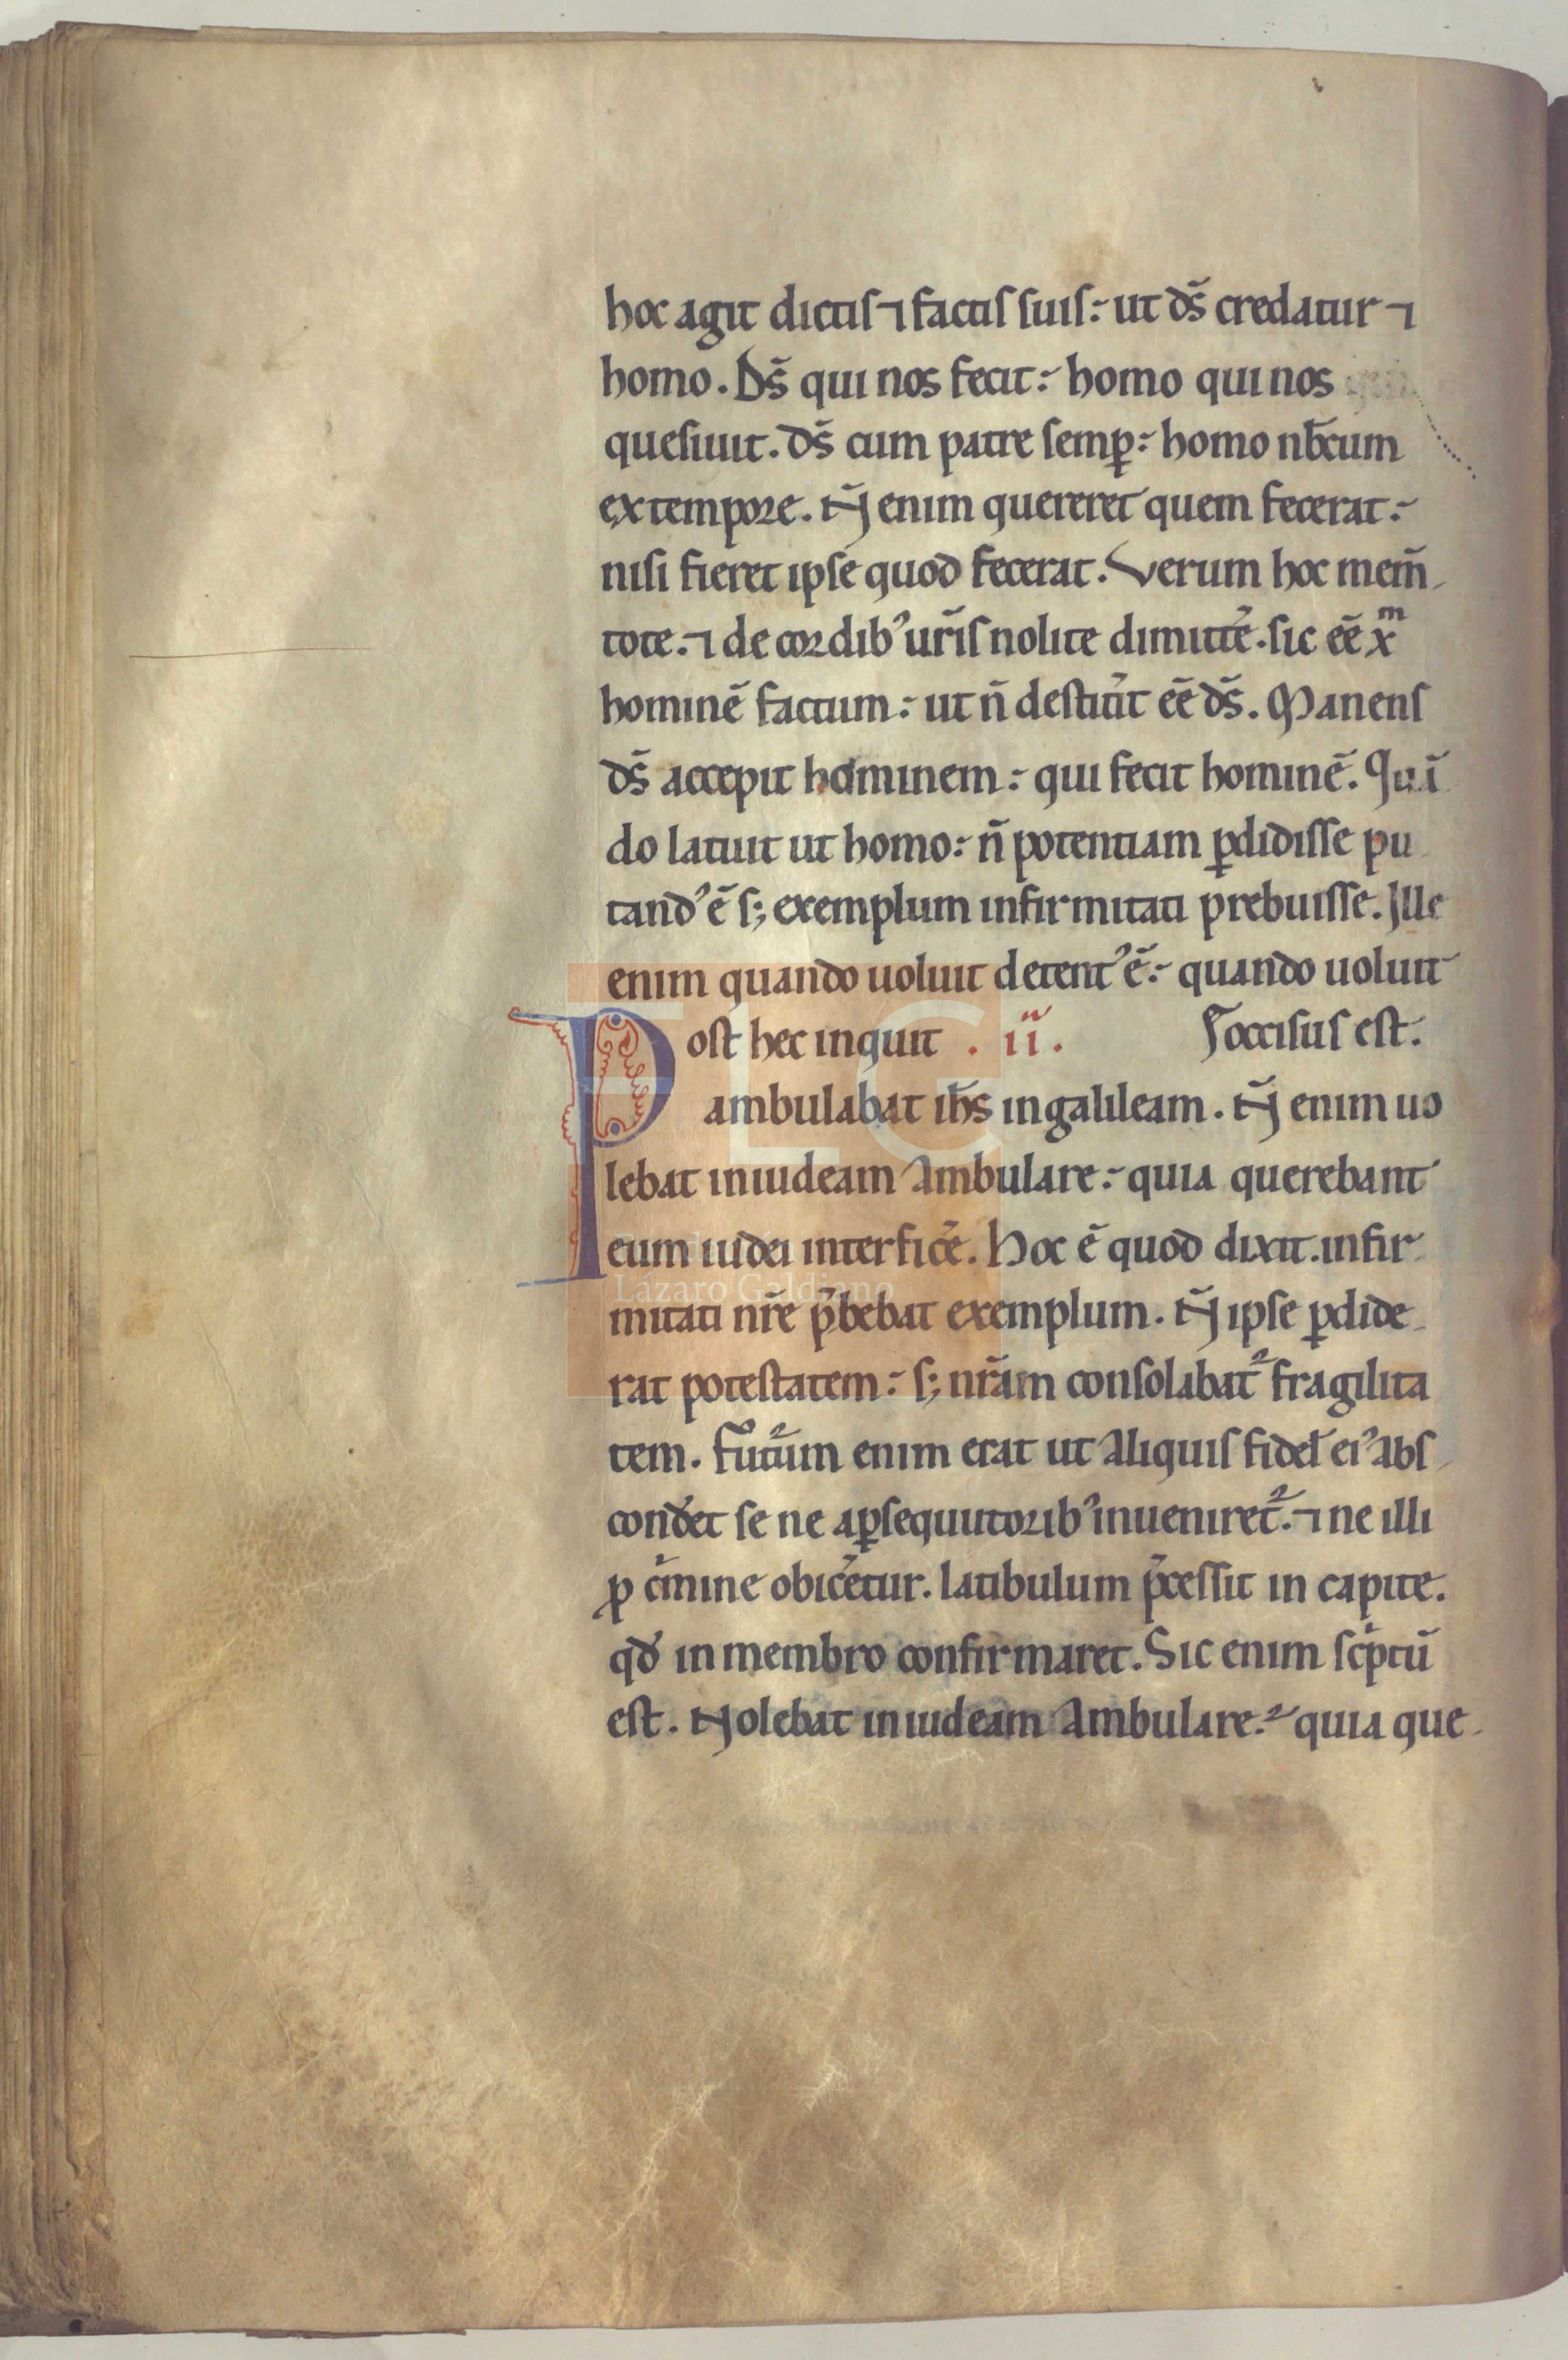 hoc agit dictis ⁊ factis suis: ut ds̄ credatur ⁊
homo. Ds̄ qui nos fecit: homo qui nos
quesiuit. ds̄ cum patre semꝑ: homo nb̄cum
ex tempore. N̄ enim quereret quem fecerat:
nisi fieret ipse quod fecerat. Verum hoc mem̄
tote. ⁊ de cordib’ ur̄is nolite dimitte᷒. sic eē xᵐ
hominē factum: ut n̄ destiti᷒t eē ds̄. Manens
ds̄ accepit hominem: qui fecit hominē. Quā
do latuit ut homo: n̄ potentiam ꝑdidisse pu
tand’ ē s; exemplum infirmitati prebuisse. Ille
enim quando uoluit detent’ ē: quando uoluit
occisus est.
Post hec inquit . ii.
ambulabat ih̄s in galileam. N̄ enim uo
lebat in iudeam ambulare: quia querebant
eum iudei interfice᷒. Hoc ē quod dixit. infir
mitati nr̄e p̄bebat exemplum. N̄ ipse ꝑdide
rat potestatem: s; nr̄am consolabat᷑ fragilita
tem. Futur᷑um enim erat ut aliquis fidel̄ ei’ abs
conde᷒t se ne a ꝑsequutorib’ inueniret᷑. ⁊ ne illi
ꝓ cͥmine obice᷒tur. latibulum p̄cessit in capite.
qd̄ in membro confirmaret. Sic enim scͥptū
est. Nolebat in iudeam ambulare: quia que
FLG
Lázaro Galdiano